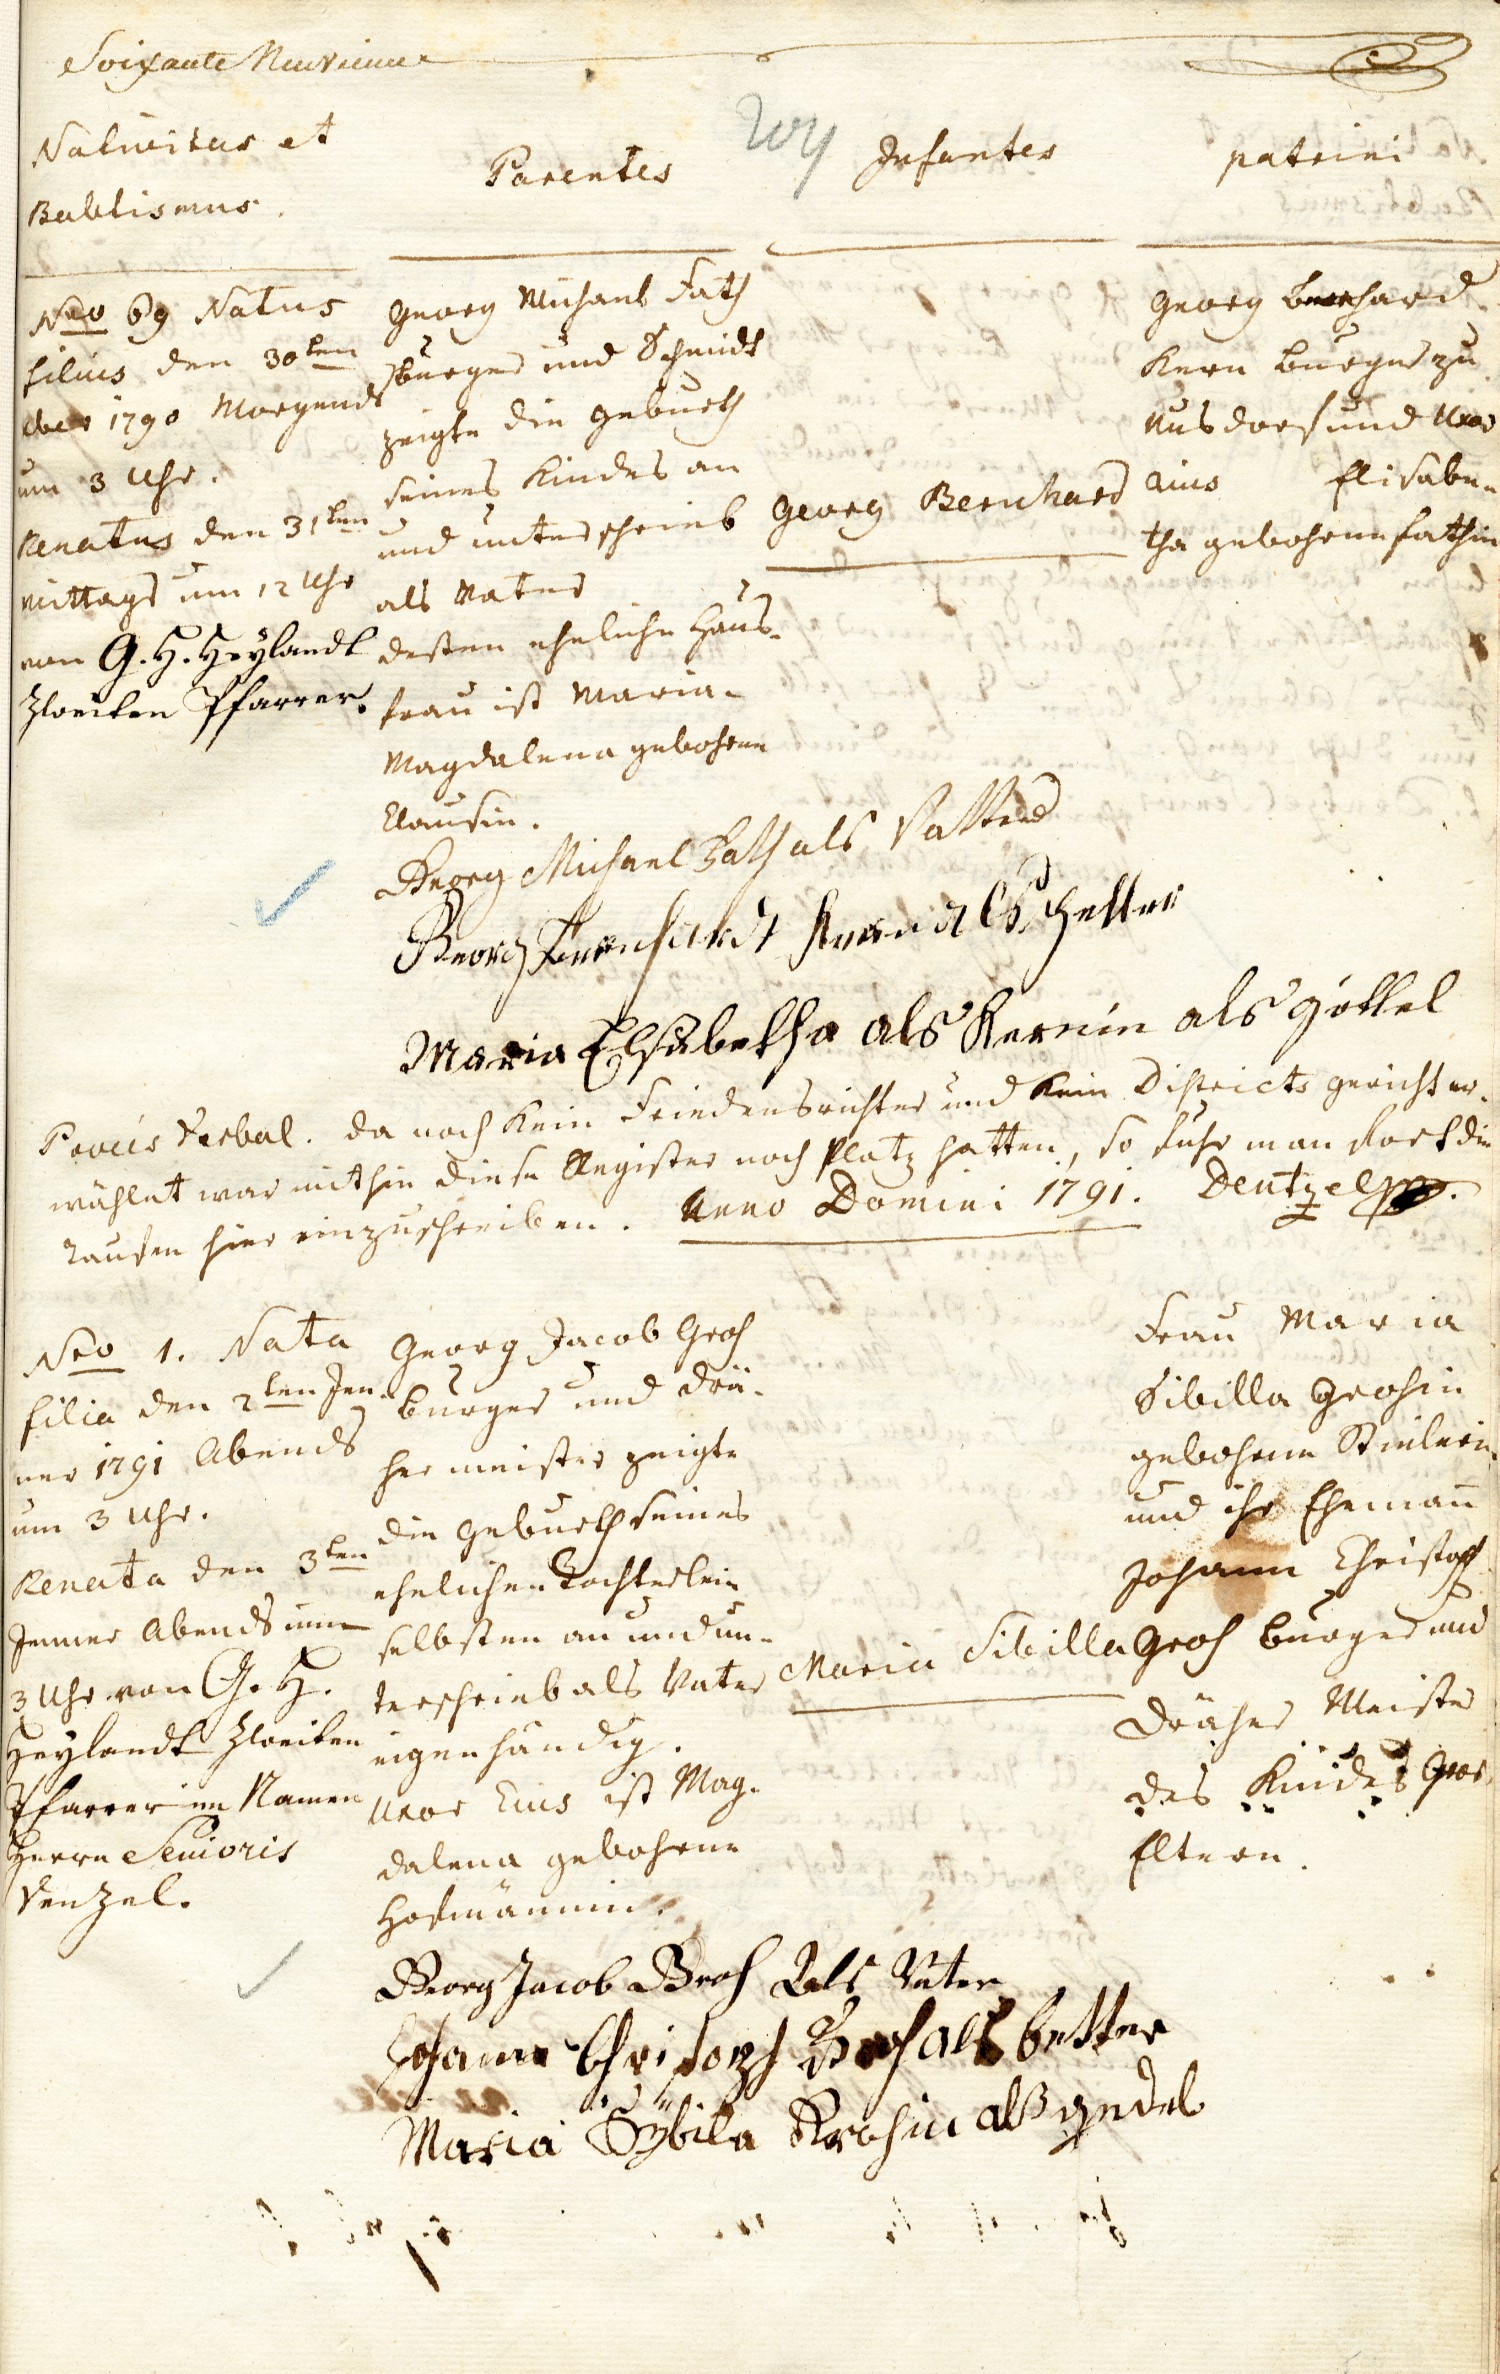 Soixante Neuvieme
Nativitas et
Babtismus.
Parentes
Infantes
patrini
Nro 69 Natus
filius den 30ten
xber 1790 Morgends
um 3 Uhr.
Renatus den 31ten
mittags um 12 Uhr
von G. H. Heylandt
Zweiten Pfarrer.
Georg Michael Fath
burger und Schmidt
zeigte die geburth
seines Kindes an
und unterschrieb
als Vater
dessen eheliche Haus-
frau ist Maria-
Magdalena gebohrne
Clausin.
Georg Bernhard
Georg Bernhard
Kern burger zu
Nusdorf und Uxor
eius Elisabe-
tha gebohrne fathin
Georg Michael Fath als Vatter
Georg Bernhardt Kern als Pfetter
Maria Elsabetha als Kernin als göttel
Proces Verbal. da noch kein Friedensrichter und kein Districts gericht er-
wählet war mithin diese Register noch Platz hatten, so fuhr man fort die
Taufen hier einzuschreiben. Anno Domini 1791. Dentzel
Nro 1. Nata
filia den 2ten Jen-
ner 1791 Abends
um 3 Uhr.
Renata den 3ten
Jenner Abends um
3 Uhr von G. H.
Heylandt Zweiten
Pfarrer im Namen
Herrn Senioris
Denzel.
Georg Jacob Groh
burger und Drä-
her meister zeigte
die geburth seines
ehelichen Tochterlein
selbsten an und un-
terschrieb als Vater
eigenhändig.
Uxor Eius ist Mag-
dalena gebohrne
Hofmännin.
Maria Sibilla
Frau Maria
Sibilla Grohin
gebohrne
und ihr Ehemann
Johann Christoph
Groh burger und
Dräher Meister
des Kindes Gros-
Eltern.
Georg Jacob Groh Als Vater
Johann Christoph Groh als Petter
Maria Sybila Krohin alß gedel